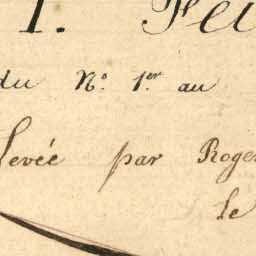 1. Feu
du N.° 1.er au
levée par Roger
le